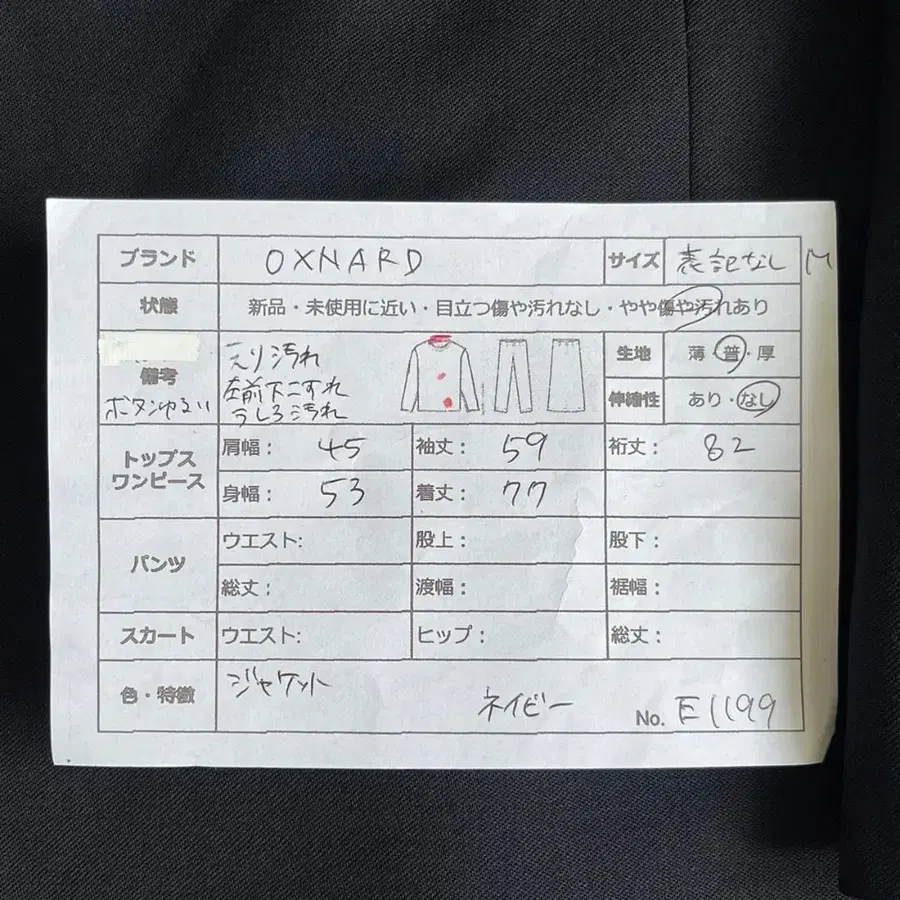 ブランド OXNARD サイズ 表記なし M
状態 新品・未使用に近い・目立つ傷や汚れなし・やや傷や汚れあり
備考 えり汚れ 生地 薄・普・厚
ボタンゆるい 左前下こすれ 伸縮性 あり・なし
うしろ汚れ
トップス 肩幅: 45 袖丈: 59 裄丈: 82
ワンピース 身幅: 53 着丈: 77
パンツ ウエスト: 股上: 股下:
総丈: 渡幅: 裾幅:
スカート ウエスト: ヒップ: 総丈:
色・特徴 ジャケット ネイビー No. E1199